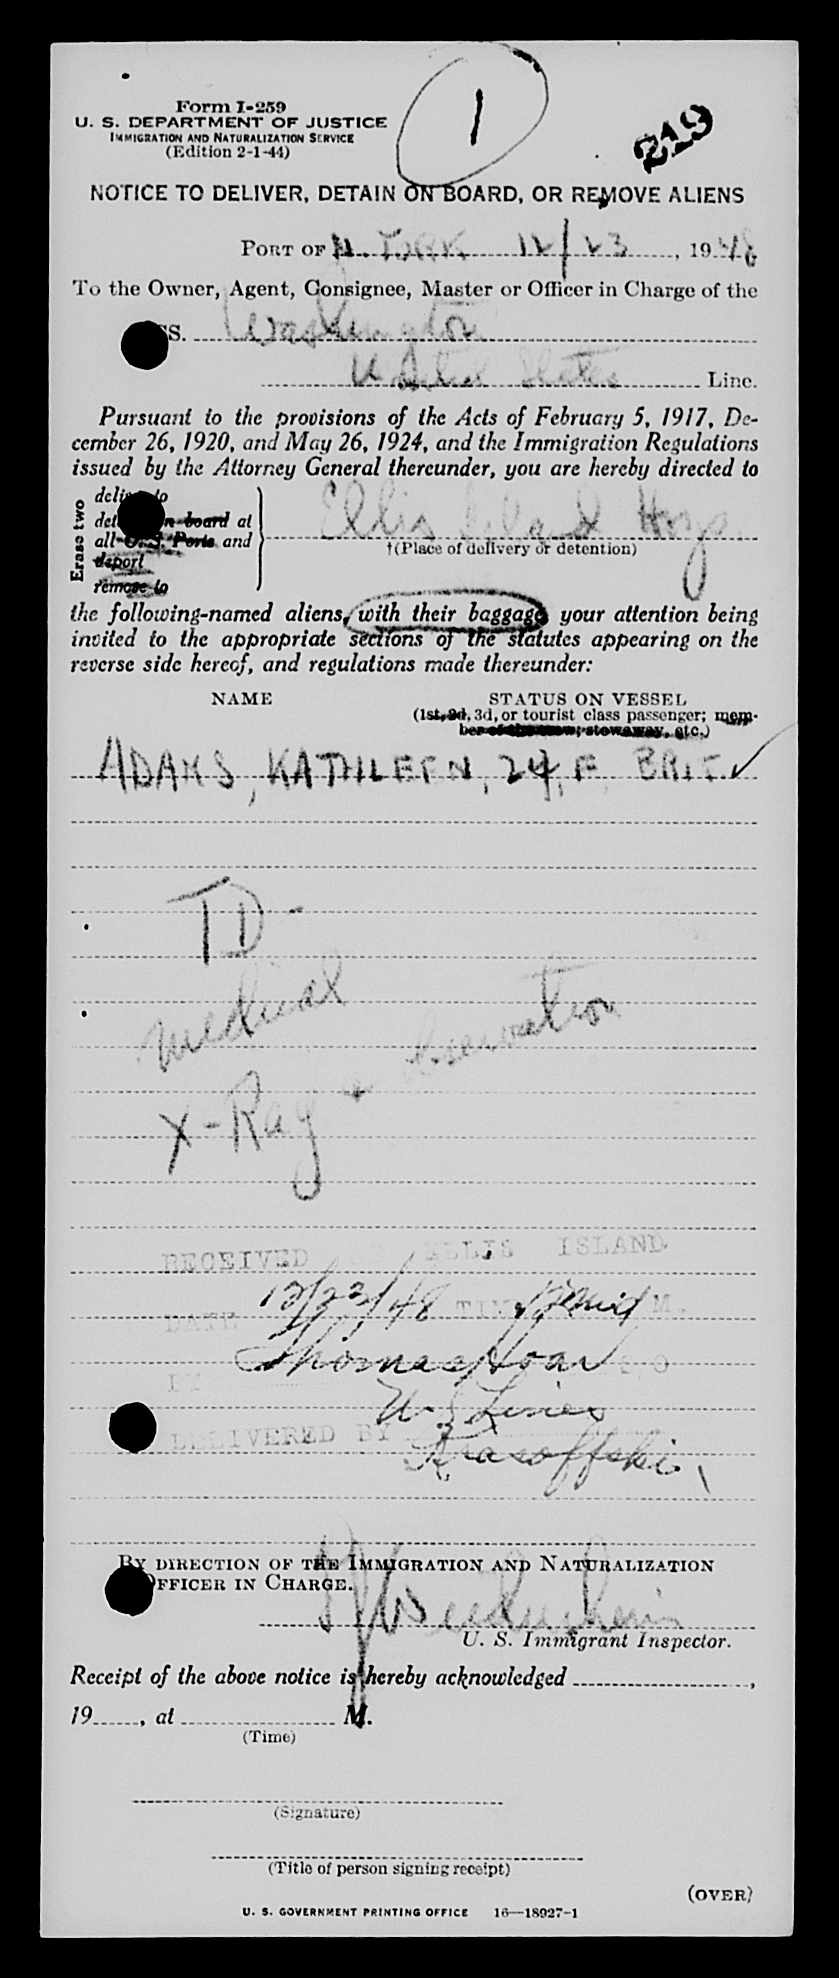 Form I-259
U. S. DEPARTMENT OF JUSTICE
IMMIGRATION AND NATURALIZATION SERVICE
(Edition 2-1-44)
1
219
NOTICE TO DELIVER, DETAIN ON BOARD, OR REMOVE ALIENS
PORT OF N. YORK 12/23, 1948
To the Owner, Agent, Consignee, Master or Officer in Charge of the
SS. Washington
United States Line.
Pursuant to the provisions of the Acts of February 5, 1917, De-
cember 26, 1920, and May 26, 1924, and the Immigration Regulations
issued by the Attorney General thereunder, you are hereby directed to
Erase two
deliver to
detain on board at
all U.S. Ports and
deport
remove to
Ellis Island Hosp.
†(Place of delivery or detention)
the following-named aliens, with their baggage, your attention being
invited to the appropriate sections of the statutes appearing on the
reverse side hereof, and regulations made thereunder:
NAME STATUS ON VESSEL
(1st, 2d, 3d, or tourist class passenger; mem-
ber of the crew, stowaway, etc.)
ADAMS, KATHLEEN, 24, F. BRIT. ✓
TD-
Medical
observation
X-Ray
RECEIVED ELLIS ISLAND
DATE 12/23/48 TIME M.
BY Thomas
U.S. Lines
DELIVERED BY
BY DIRECTION OF THE IMMIGRATION AND NATURALIZATION
OFFICER IN CHARGE.
U. S. Immigrant Inspector.
Receipt of the above notice is hereby acknowledged ,
19 , at M.
(Time)
(Signature)
(Title of person signing receipt)
(OVER)
U. S. GOVERNMENT PRINTING OFFICE 16—18927-1